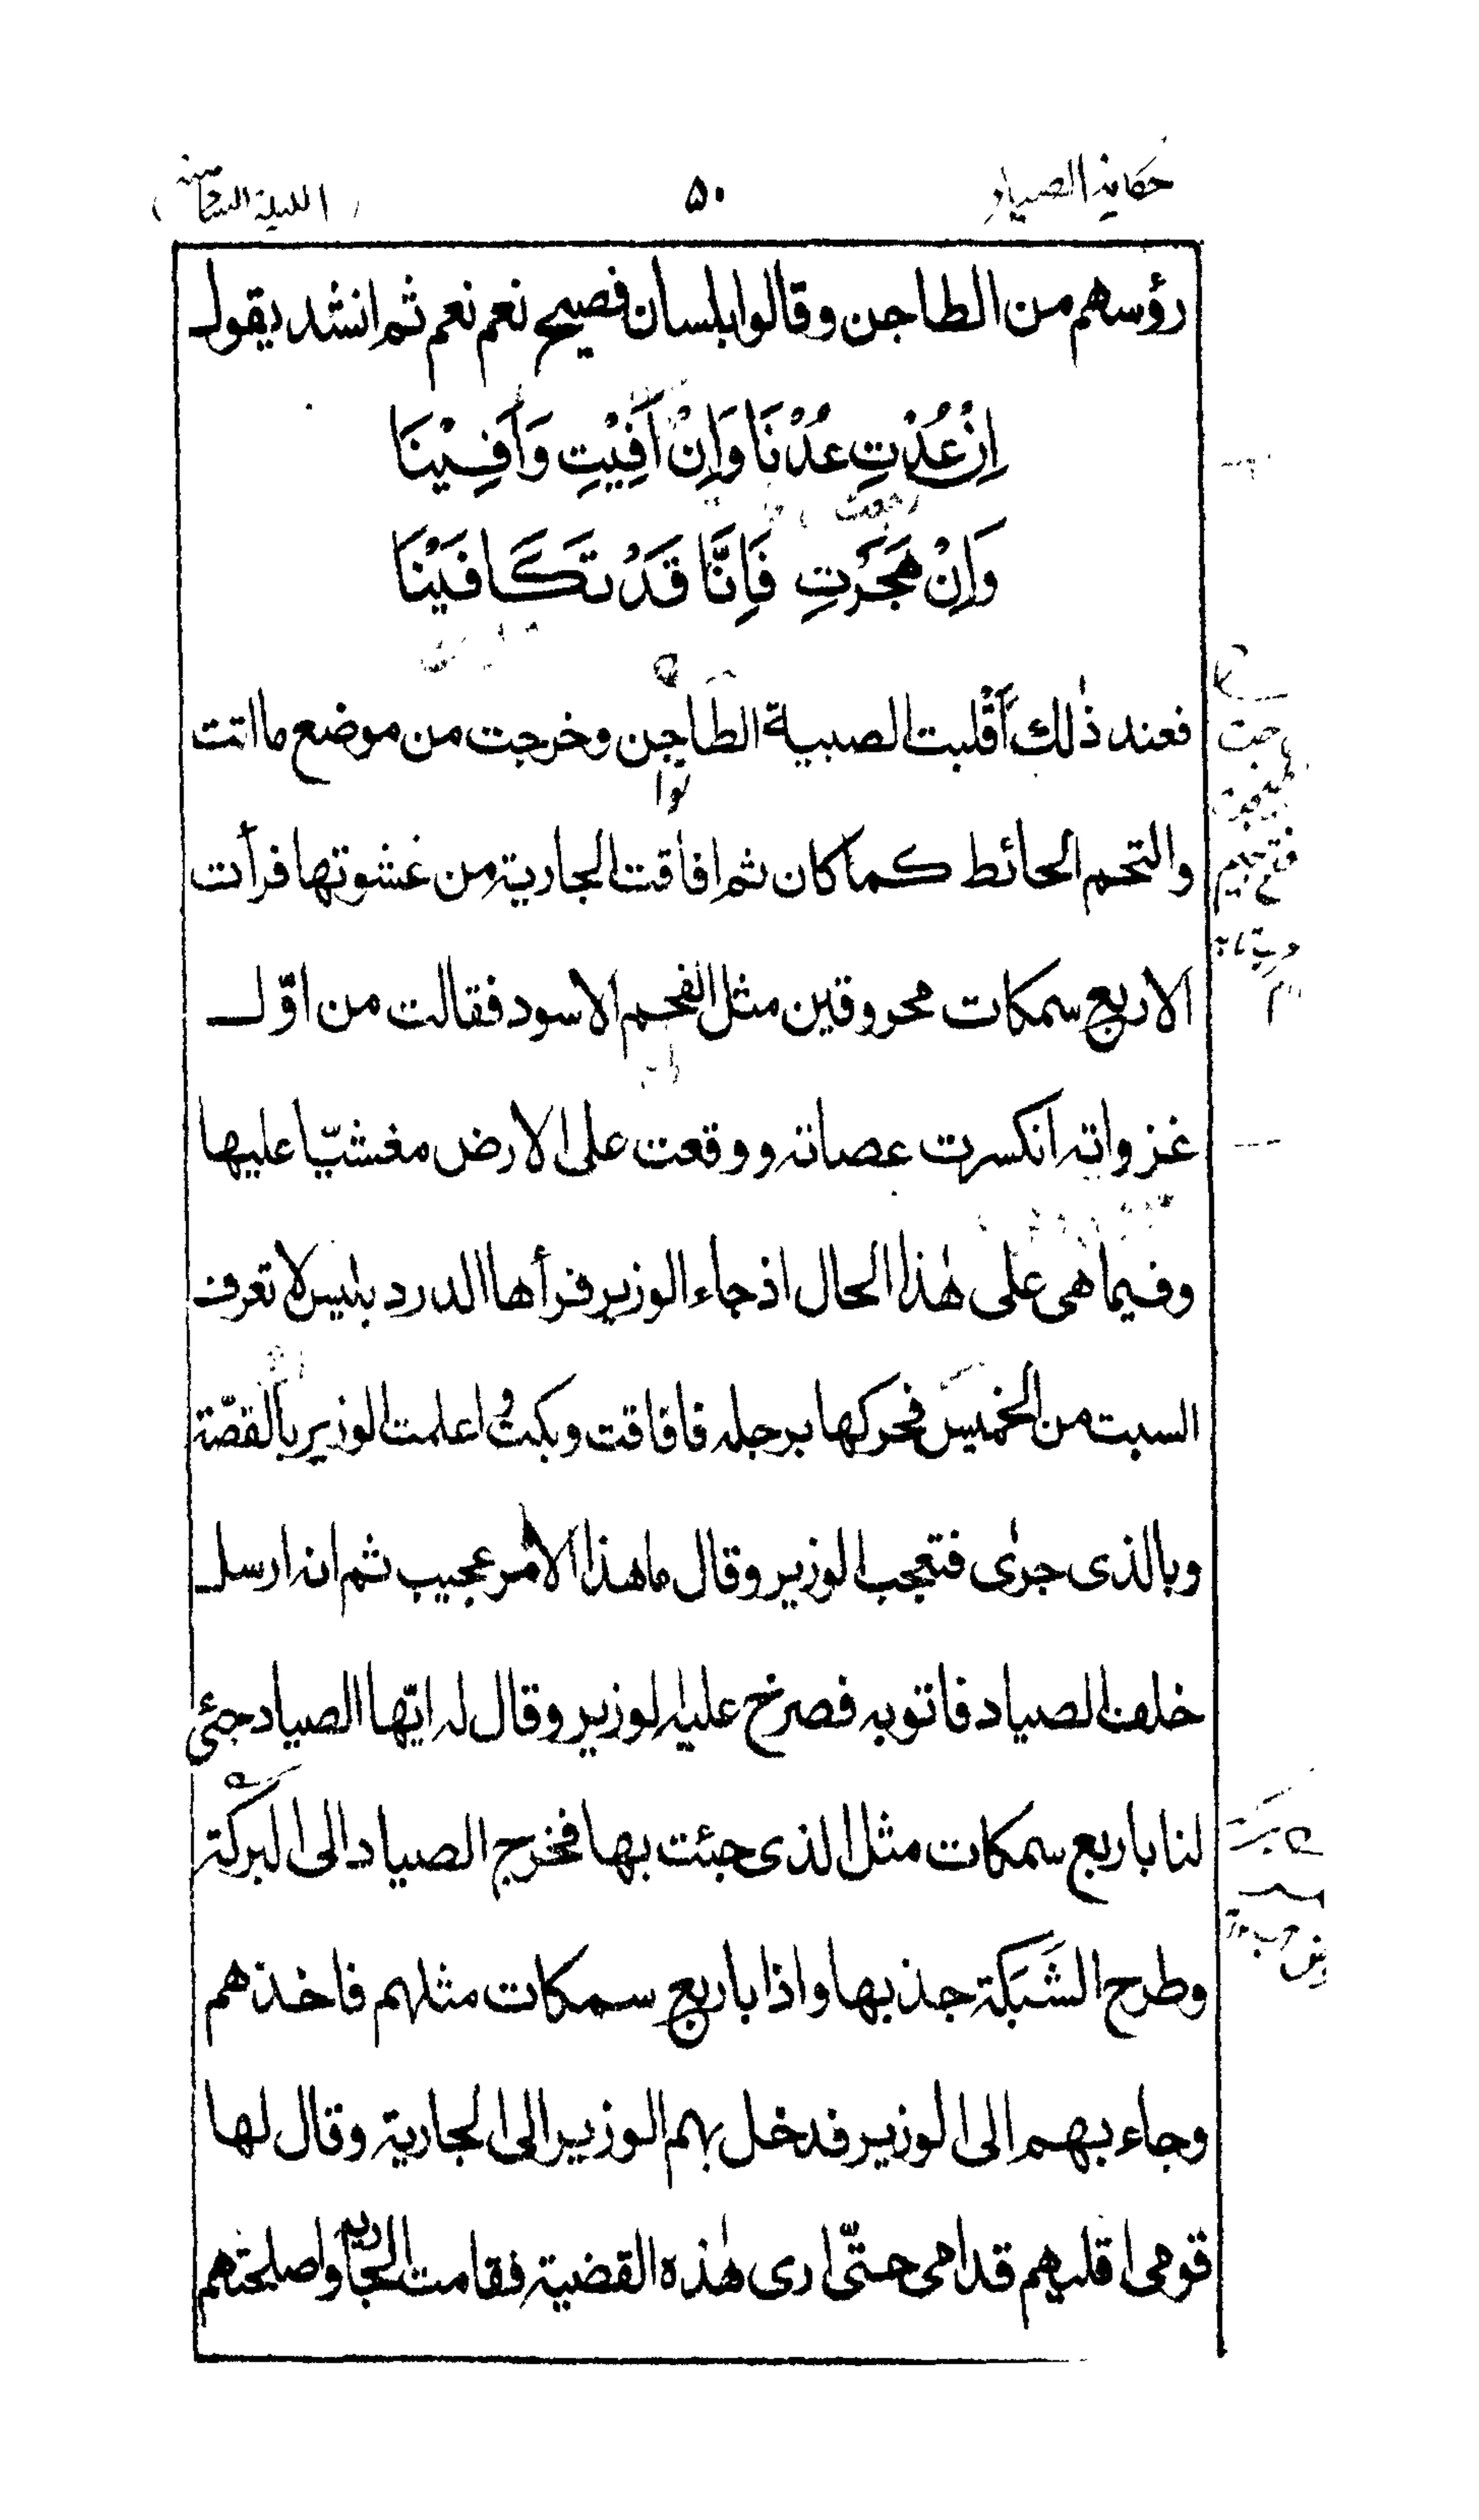 حكاية الصياد ٥٠ الليلة
رؤسهم من الطاجن وقالوا بلسان فصيح نعم نعم ثم انشد يقول
اِنْ عُدْتِ عُدْنَا وَاِنْ اَفِيْتِ وَاَفِيْنَا
وَاِنْ هَجَرْتِ فَاِنَّا قَدْ تَكَافَيْنَا
فعند ذٰلك اَقلبت الصبية الطاجن وخرجت من موضع ما اتت
والتحم الحائط كما كان ثم افاقت الجارية من غشوتها فرأت
الاربع سمكات محروقين مثل الفحم الاسود فقالت من اوّل
غزواته انكسرت عصاته ووقعت على الارض مغشيّا عليها
وفيما هى على هٰذا الحال اذ جاء الوزير فرأها الدرد بئيس لا تعرف
السبت من الخميس فحركها برجله فافاقت وبكتْ اعلمت الوزير بالقصّة
وبالذى جرٰى فتعجب الوزير وقال ما هذا الامر عجيب ثم انه ارسل
خلف الصياد فاتوبه فصرخ عليه الوزير وقال له ايّها الصياد جئ
لنا باربع سمكات مثل الذى جئت بها فخرج الصياد الى البركة
وطرح الشَبَكة جذبها واذا باربع سمكات مثلهم فاخذهم
وجاء بهم الى الوزير فدخل بهم الوزير الى الجارية وقال لها
قومى اقليهم قدامى حتّى ارى هٰذه القضية فقامت الجارية واصلحتهم